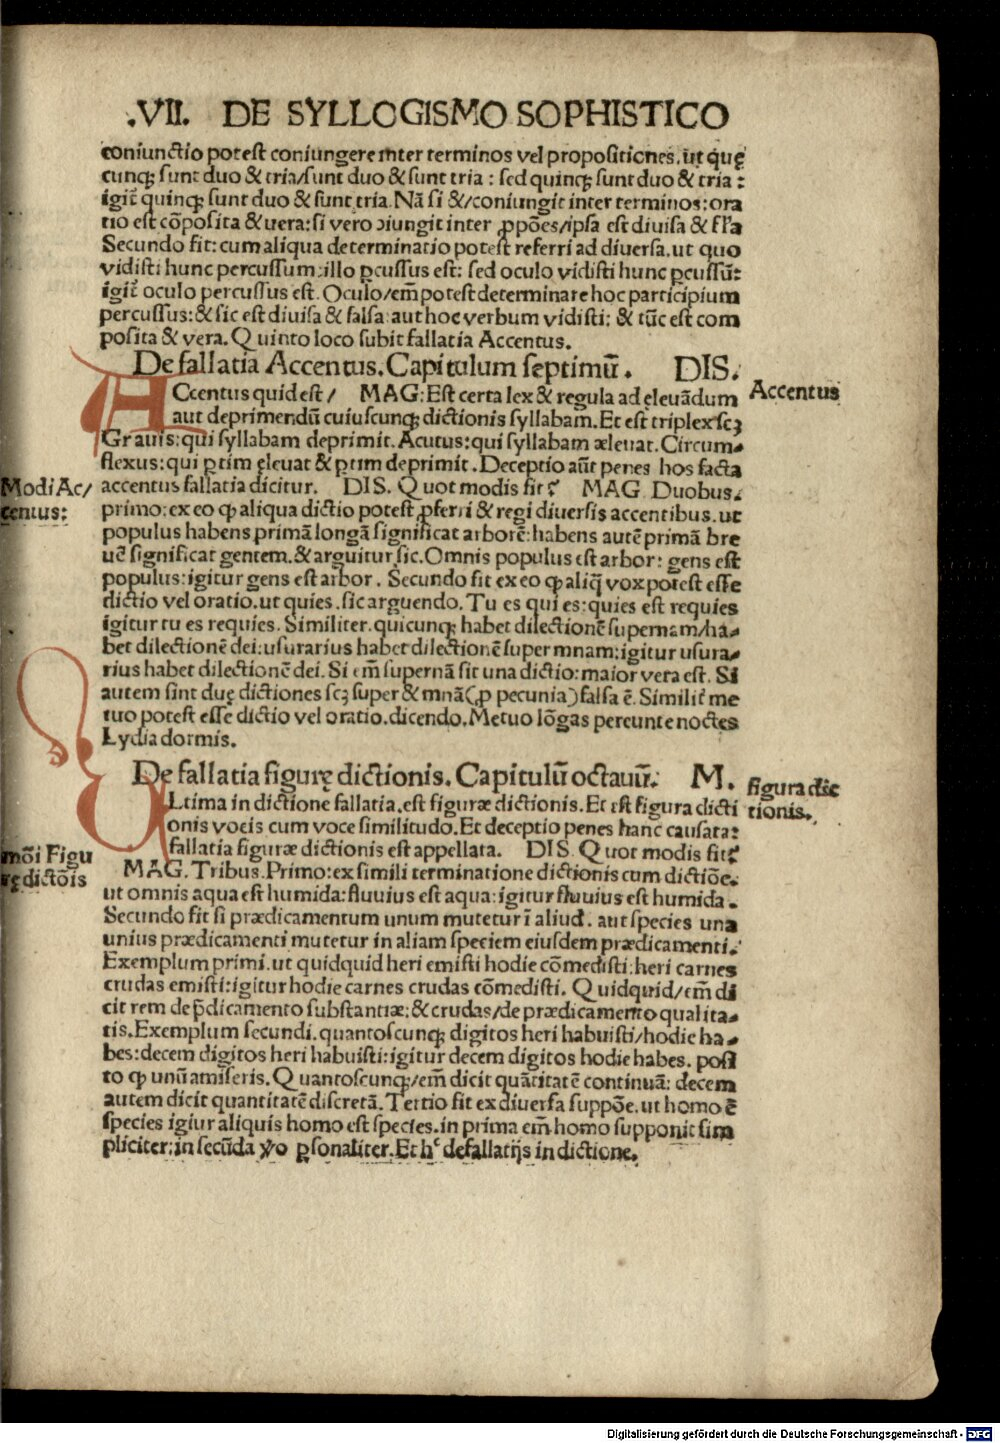 .VII. DE SYLLOGISMO SOPHISTICO
coniunctio potest coniungere inter terminos vel propositiones. ut quę
cunqȝ sunt duo & tria/sunt duo & sunt tria : sed quinqȝ sunt duo & tria :
igit̃ quinqȝ sunt duo & sunt tria. Nã si &/coniungit inter terminos: ora
tio est cõposita & uera: si vero ↄiungit inter ꝓpões/ipsa est diuisa & fl̃a
Secundo fit: cum aliqua determinatio potest referri ad diuersa. ut quo
vidisti hunc percussum: illo ꝑcussus est: sed oculo vidisti hunc ꝑcussũ:
igit̃ oculo percussus est. Oculo/em̃ potest determinare hoc participium
percussus: & sic est diuisa & falsa: aut hoc verbum vidisti: & tũc est com
posita & vera. Quinto loco subit fallatia Accentus.
De fallatia Accentus. Capitulum septimũ. DIS.
ACcentus quid est/ MAG: Est certa lex & regula ad ęleuãdum
aut deprimendũ cuiuscunqȝ dictionis syllabam. Et est triplex scȝ
Grauis: qui syllabam deprimit. Acutus: qui syllabam æleuat. Circum-
flexus: qui ꝑtim ęleuat & ꝑtim deprimit. Deceptio aũt penes hos facta
accentus fallatia dicitur. DIS. Quot modis fit? MAG Duobus.
primo: ex eo ꝙ aliqua dictio potest ꝓferri & regi diuersis accentibus. ut
populus habens primã longã significat arborẽ: habens autẽ primã bre
uẽ significat gentem. & arguitur sic. Omnis populus est arbor: gens est
populus: igitur gens est arbor. Secundo fit ex eo ꝙ aliq̃ vox potest esse
dictio vel oratio. ut quies. sic arguendo. Tu es qui es: quies est requies
igitur tu es requies. Similiter. quicunqȝ habet dilectionẽ supernam/ha-
bet dilectionẽ dei: usurarius habet dilectionẽ super mnam: igitur usura-
rius habet dilectionẽ dei. Si em̃ supernã sit una dictio: maior vera est. Si
autem sint duę dictiones scȝ super & mnã(ꝓ pecunia) falsa ẽ. Similit̃ me
tuo potest esse dictio vel oratio. dicendo. Metuo lõgas pereunte noctes
Lydia dormis.
De fallatia figurę dictionis. Capitulũ octauũ. M.
VLtima in dictione fallatia. est figuræ dictionis. Et est figura dicti
onis vocis cum voce similitudo. Et deceptio penes hanc causata:
fallatia figuræ dictionis est appellata. DIS. Quot modis fit?
MAG. Tribus. Primo: ex simili terminatione dictionis cum dictiõe.
ut omnis aqua est humida: fluuius est aqua: igitur fluuius est humida.
Secundo fit si prædicamentum unum mutetur ĩ aliud. aut species una
unius prædicamenti mutetur in aliam speciem eiusdem prædicamenti.
Exemplum primi. ut quidquid heri emisti hodie cõmedisti: heri carnes
crudas emisti: igitur hodie carnes crudas cõmedisti. Quidquid/em̃ di
cit rem de p̃dicamento substantiæ: & crudas/de prædicamento qualita-
tis. Exemplum secundi. quantoscunqȝ digitos heri habuisti/hodie ha-
bes: decem digitos heri habuisti: igitur decem digitos hodie habes. posi
to ꝙ unũ amiseris. Quantoscunqȝ/em̃ dicit quãtitatẽ continuã: decem
autem dicit quantitatẽ discretã. Tertio fit ex diuersa suppõe. ut homo ẽ
species igiur aliquis homo est species. in prima em̃ homo supponit sim
pliciter: in secũda ṽo ꝑsonaliter. Et hᶜ de fallatijs in dictione.
Accentus
Modi Ac/
centus:
figura dic
tionis.
mõi Figu
rę dictõis
Digitalisierung gefördert durch die Deutsche Forschungsgemeinschaft - DFG